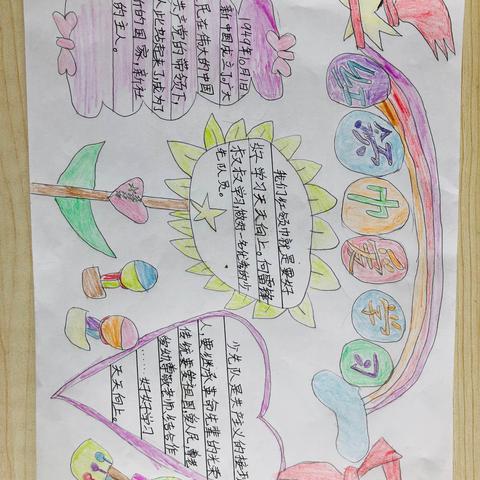 红领巾爱学习
1949年10月1日
新中国成立了,广大
民在伟大的中国
共产党的带领下,
人从此站起来了,成为了
新的国家,新社
的主人。
我们红领巾就是要好
好学习天天向上。向雷锋
叔叔学习做好一名优秀的少
先队员。
少先队是共产主义的接班
人,要继承革命先辈的光荣
传统要爱祖国,爱人民,尊老
爱幼尊敬老师,团结合作
……好好学习
天天向上。